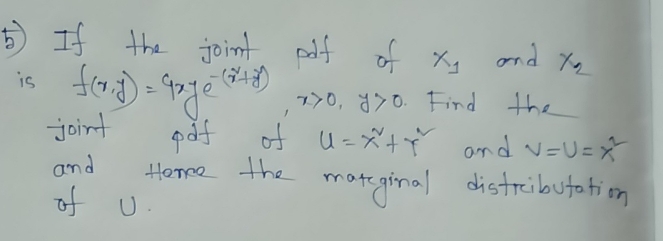 5) If the joint pdf of X₁ and X₂
is f(x,y) = 4xye^-(x²+y²), x>0, y>0. Find the
joint pdf of U = X²+Y² and V=U=X²
and Hence the marginal distributation
of U.